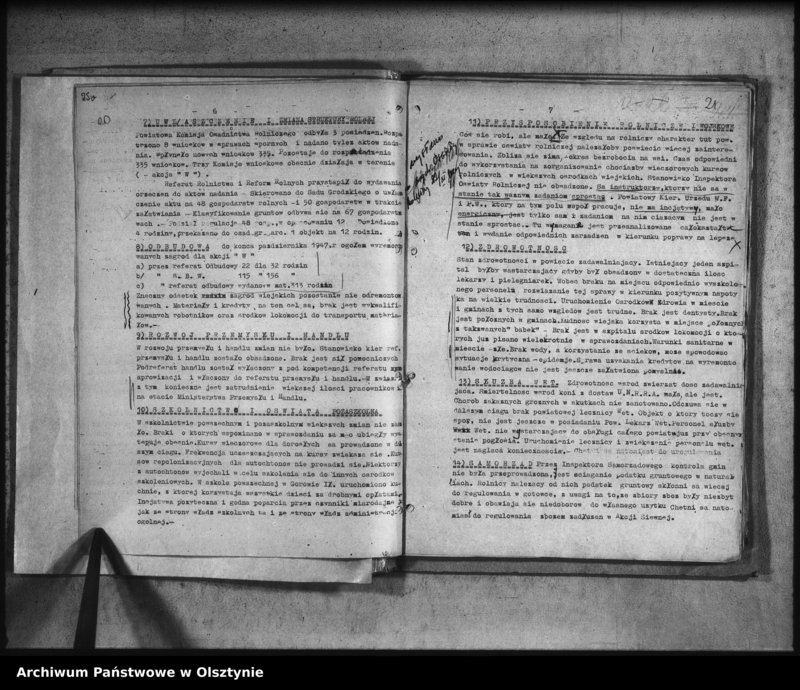 - 6 -
7) UWŁASZCZENIE I ZMIANA STRUKTURY ROLNEJ
Powiatowa Komisja Osadnictwa Rolniczego odbyła 3 posiedzen. Rozpa
trzono 8 wniosków w sprawach spornych i nadano tyleż aktów nada-
nia. Wpłynęło nowych wniosków 339. Pozostaje do rozpatrzenia
335 wniosków. Trzy Komisje wnioskowe obecnie działają w terenie
( - akcja "W" ).
Referat Rolnictwa i Reform Rolnych przystąpił do wydawania
orzeczeń do aktów nadania - Skierowano do Sądu Grodzkiego o ustale
żenie aktu na 48 gospodarstw rolnych - i 50 gospodarstw w trakcie
załatwiania - Klasyfikowanie gruntów odbywa się na 67 gospodarstwa
4 rodziny, przekazano do osad. gr. 1 objekt na 12 rodzin.
8) ODBUDOWA do konca pazdziernika 1947.r ogołem wyremonto
wanych zagród dla akcji "W"
a) przez referat Odbudowy 22 dla 32 rodzin
b) " R.B.W. 115 " 156 "
c) " referat odbudowy wydano mat. 313 rodzin
Znaczny odsetek zagród wiejskich pozostanie nie odremontow
wanych. Materiały i kredyty na ten cel są, brak jest wykwalifi-
kowanych robotników oraz środkow lokomocji do transportu materia-
łow.-
9) ROZWOJ PRZEMYSŁU I HANDLU
W rozwoju przemysłu i handlu zmian nie było. Stanowisko kier ref.
przemysłu i handlu zostało obsadzone. Brak jest sił pomocniczych
Podreferat handlu został wyłączony z pod kompetencji referatu
aprowizacji i włączony do referatu przemysłu i handlu. W związku
z tym konieczne jest zatrudnienie większej ilości pracowników i
na etacie Ministerstwa Przemysłu i Handlu.
10) SZKOLNICTWO I OSWIATA POZASZKOLNA
W szkolnictwie powszechnym i pozaszkolnym większych zmian nie zasz
ło. Braki o których wspomniano w sprawozdaniu za m-c ubiegły wys
tępują obecnie. Kursy wieczorowe dla dorosłych są prowadzone w dal
szym ciągu. Frekwencja uczęszczających na kursy zwiększa się. Kur
sów repolonizacyjnych dla autochtonów nie prowadzi się. Niektórzy
z autochtonów wyjechali w celu szkolenia się do innych osrodków
szkoleniowych. W szkole powszechnej w Gorowie Ił. uruchomiono ku-
chnię, z której korzystają wszystkie dzieci za drobnymi opłatami.
Inicjatywa pozyteczna i godna poparcia przez czynniki miarodajne
jak ze strony władz szkolnych tak i ze strony władz administracji
ogólnej.-
- 7 -
11) PRZYSPOSOBIENIE ROLNICZE I WOJSKOWE
Coś się robi, ale mało. Ze względu na rolniczy charakter tut pow.
w sprawie oświaty rolniczej należałoby powiecie więcej zaintere-
sowania. Zbliża się zima - okres bezrobocia na wsi. Czas odpowiedni
do wykorzystania na zorganizowanie chociazby wieczorowych kursów
rolniczych w większych osrodkach wiejskich. Stanowisko Inspektora
Oswiaty Rolniczej nie obsadzone. Są instruktorzy, którzy nie są w
stanie tak ważnym zadaniom sprostać. Powiatowy Kier. Urzędu W.F.
i P.W., który na tym polu współ pracuje, nie ma inicjatywy, mało
energiczny, jest tylko sam i zadaniom na nim ciążącym nie jest w
stanie sprostać.. Tu wymagana jest przeanalizowanie całokształtu
tan i wydanie odpowiednich zarządzeń w kierunku poprawy na lepsze
12) ZDROWOTNOSC
Stan zdrowotności w powiecie zadawalniający. Istniejący jeden szpi-
tal byłby wystarczający gdyby był obsadzony w dostateczną ilosc
lekarzy i pielęgniarek. Wobec braku na miejscu odpowiednio wyszkolo-
nego personelu rozwiązanie tej sprawy w kierunku pozytywnym napoty
ka na wielkie trudnosci. Uruchomienie Osrodków Zdrowia w mieście
i gminach z tych samo względów jest trudne. Brak jest dentysty. Brak
jest położnych w gminach. Ludnosc wiejska korzysta w miejsce położnych
z takzwanych" babek" - Brak jest w szpitalu srodkow lokomocji o któ-
rych już pisano wielokrotnie w sprawozdaniach. Warunki sanitarne w
mieście - złe. Brak wody, a korzystanie ze ścieków, może spowodować
sytuację krytyczną - epidemję. Sprawa uzyskania kredytów na wyremonto
wanie wodociągów nie jest jeszcze załatwiona pomyslnie.
13) SŁUZBA WET. Zdrowotnosc wsrod zwierząt dosc zadawalnia-
jąca. Smiertelnosc wsrod koni z dostaw U.N.R.R.A. mała, ale jest.
Chorób zakaznych groznych w skutkach nie zanotowano. Odczuwa się w
dalszym ciągu brak powiatowej lecznicy Wet. Objekt o który toczy się
spór, nie jest jeszcze w posiadaniu Pow. Lekarz Wet. Personel słuzby
Wet. nie wystarczający do obsługi całego powiatu jak przy obecnym
stanie pogłowia. Uruchomienie lecznicy i zwiększenie personelu wet. s
jest nagłącą koniecznoscią.-
14) SAMORZAD Przez Inspektora Samorządowego kontrola gmin
nie była przeprowadzona, jest ściąganie podatku gruntowego w natural
iach. Rolnicy należący od nich podatek gruntowy skłonni są więcej
do regulowania w gotowce, z uwagi na to, że zbiory zboż były niezbyt
dobre i obawiają się niedoborów do własnego użytku Chętni są nato-
miast do regulowania zbożem zadłużeń w Akcji Siewnej.
Archiwum Państwowe w Olsztynie